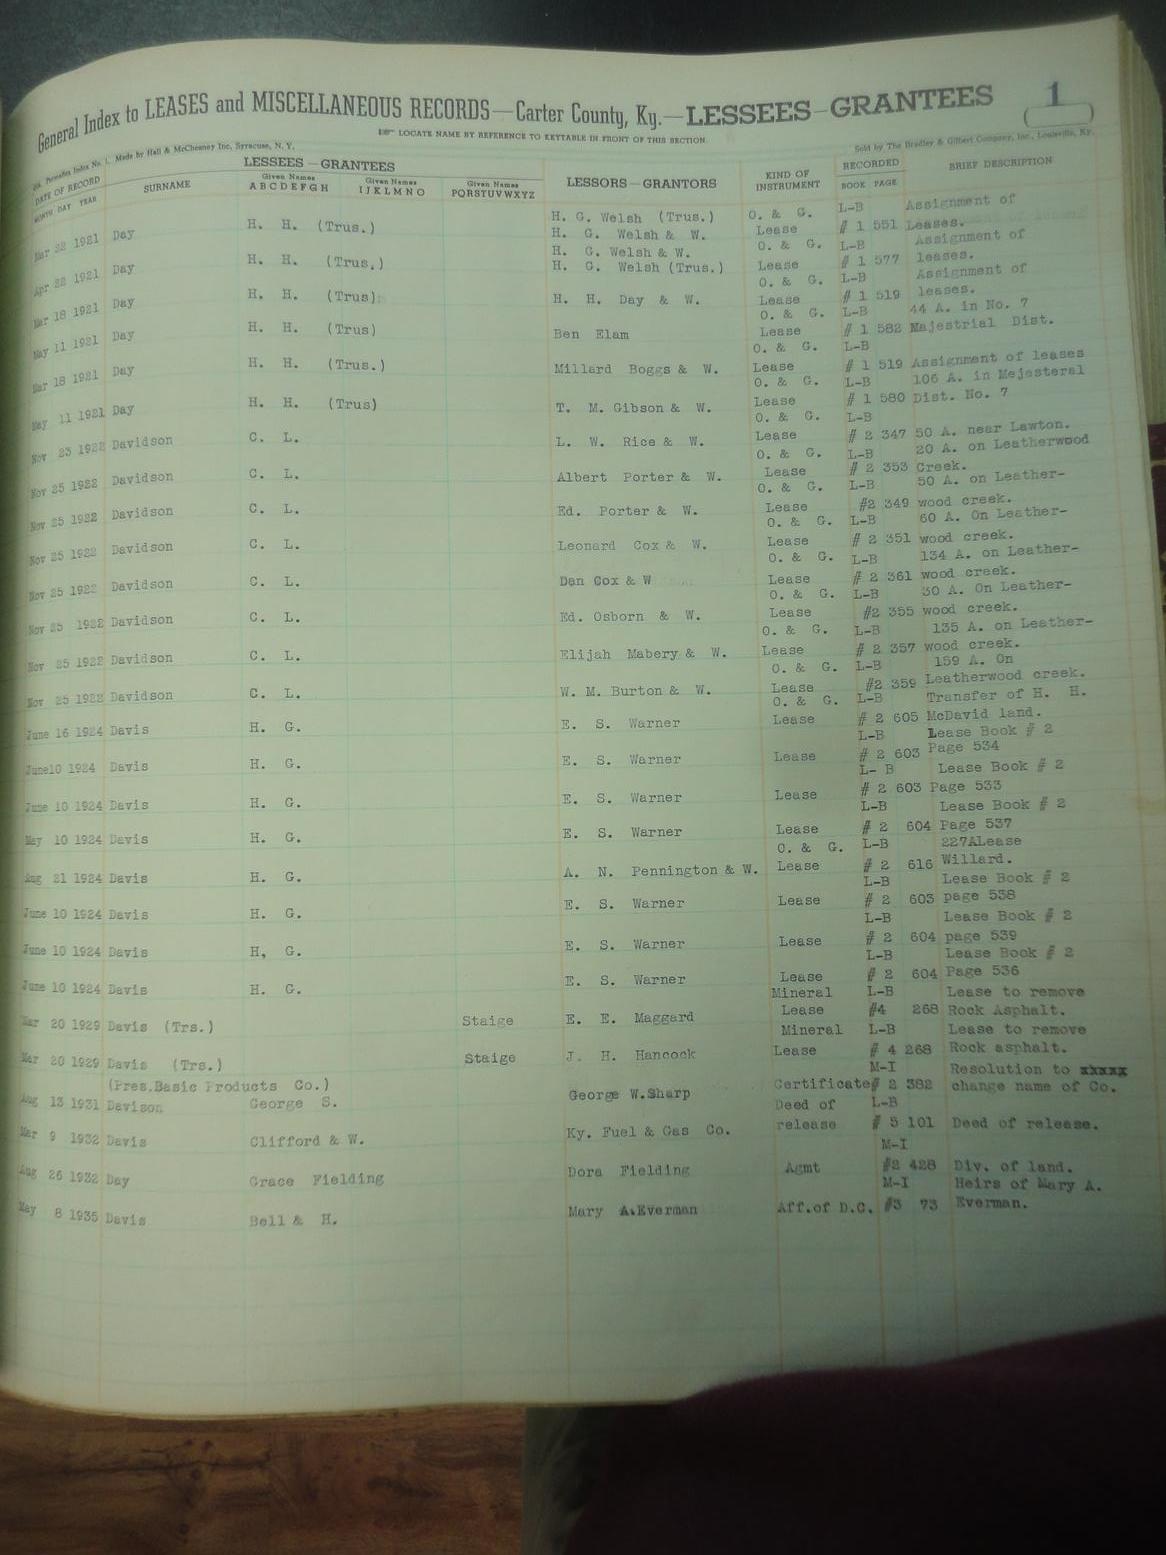 General Index to LEASES and MISCELLANEOUS RECORDS—Carter County, Ky.—LESSEES—GRANTEES 1
LOCATE NAME BY REFERENCE TO KEYTABLE IN FRONT OF THIS SECTION.
Index No. 1. Made by Hall & McChesney Inc, Syracuse, N. Y. Sold by The Bradley & Gilbert Company, Inc., Louisville, Ky.
DATE OF RECORD LESSEES—GRANTEES LESSORS—GRANTORS KIND OF INSTRUMENT RECORDED BRIEF DESCRIPTION
MONTH DAY YEAR SURNAME Given Names ABCDEFGH Given Names IJKLMNO Given Names PQRSTUVWXYZ BOOK PAGE
H. G. Welsh (Trus.) O. & G. L-B Assignment of
Mar 22 1921 Day H. H. (Trus.) H. G. Welsh & W. Lease # 1 551 Leases.
H. G. Welsh & W. O. & G. L-B Assignment of
Apr 22 1921 Day H. H. (Trus.) H. G. Welsh (Trus.) Lease # 1 577 leases.
O. & G. L-B Assignment of
Mar 18 1921 Day H. H. (Trus) H. H. Day & W. Lease # 1 519 leases.
O. & G. L-B 44 A. in No. 7
May 11 1921 Day H. H. (Trus) Ben Elam Lease # 1 582 Majestrial Dist.
O. & G. L-B
Mar 18 1921 Day H. H. (Trus.) Millard Boggs & W. Lease # 1 519 Assignment of leases
O. & G. L-B 106 A. in Mejesteral
May 11 1921 Day H. H. (Trus) T. M. Gibson & W. Lease # 1 580 Dist. No. 7
O. & G. L-B
Nov 23 1922 Davidson C. L. L. W. Rice & W. Lease # 2 347 50 A. near Lawton.
O. & G. L-B 20 A. on Leatherwood
Nov 25 1922 Davidson C. L. Albert Porter & W. Lease # 2 353 Creek.
O. & G. L-B 50 A. on Leather-
Nov 25 1922 Davidson C. L. Ed. Porter & W. Lease #2 349 wood creek.
O. & G. L-B 60 A. On Leather-
Nov 25 1922 Davidson C. L. Leonard Cox & W. Lease # 2 351 wood creek.
O. & G. L-B 134 A. on Leather-
Nov 25 1922 Davidson C. L. Dan Cox & W Lease # 2 361 wood creek.
O. & G. L-B 30 A. On Leather-
Nov 25 1922 Davidson C. L. Ed. Osborn & W. Lease #2 355 wood creek.
O. & G. L-B 135 A. on Leather-
Nov 25 1922 Davidson C. L. Elijah Mabery & W. Lease # 2 357 wood creek.
O. & G. L-B 159 A. On
Nov 25 1922 Davidson C. L. W. M. Burton & W. Lease #2 359 Leatherwood creek.
O. & G. L-B Transfer of H. H.
June 16 1924 Davis H. G. E. S. Warner Lease # 2 605 McDavid land.
L-B Lease Book # 2
June10 1924 Davis H. G. E. S. Warner Lease # 2 603 Page 534
L- B Lease Book # 2
June 10 1924 Davis H. G. E. S. Warner Lease # 2 603 Page 533
L-B Lease Book # 2
May 10 1924 Davis H. G. E. S. Warner Lease # 2 604 Page 537
O. & G. L-B 227ALease
Aug 21 1924 Davis H. G. A. N. Pennington & W. Lease # 2 616 Willard.
L-B Lease Book # 2
June 10 1924 Davis H. G. E. S. Warner Lease # 2 603 page 538
L-B Lease Book # 2
June 10 1924 Davis H, G. E. S. Warner Lease # 2 604 page 539
L-B Lease Book # 2
June 10 1924 Davis H. G. E. S. Warner Lease # 2 604 Page 536
Mineral L-B Lease to remove
Mar 20 1929 Davis (Trs.) Staige E. E. Maggard Lease #4 268 Rock Asphalt.
Mineral L-B Lease to remove
Mar 20 1929 Davis (Trs.) Staige J. H. Hancock Lease # 4 268 Rock asphalt.
(Pres.Basic Products Co.) M-I Resolution to xxxxx
Aug 13 1931 Davison George S. George W.Sharp Certificate# 2 382 change name of Co.
Deed of L-B
Mar 9 1932 Davis Clifford & W. Ky. Fuel & Gas Co. release # 5 101 Deed of release.
M-I
Aug 26 1932 Day Grace Fielding Dora Fielding Agmt #2 428 Div. of land.
M-I Heirs of Mary A.
May 8 1935 Davis Bell & H. Mary A.Everman Aff.of D.C. #3 73 Everman.